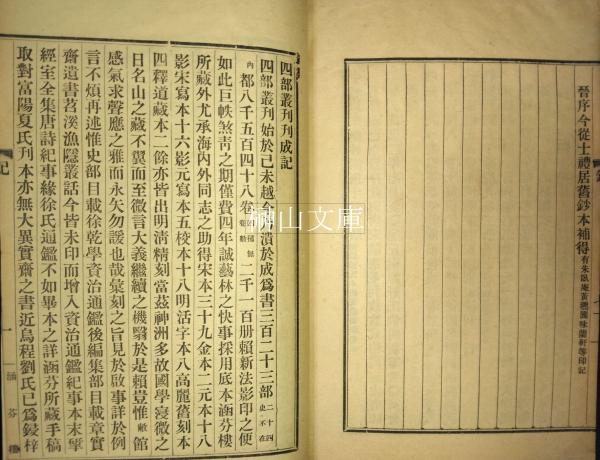 晉序今從士禮居舊鈔本補得有朱臥庵黃蕘圃味蘭軒等印記
四部叢刊刊成記
四部叢刊始於己未越今潰於成爲書三百二十三部二十四史不在
內都八千五百四十八卷 二千一百册賴新法影印之便
如此巨帙煞靑之期僅費四年誠藝林之快事採用底本涵芬樓
所藏外尤承海內外同志之助得宋本三十九金本二元本十八
影宋寫本十六影元寫本五校本十八明活字本八高麗舊刻本
四釋道藏本二餘亦皆出明淸精刻當茲神洲多故國學寖微之
日名山之藏不翼而至微言大義繼續之機緊於是賴豈惟敝館
感氣求聲應之雅而永矢勿諼也哉彙刻之旨見於啟事詳於例
言不煩再述惟史部目載徐乾學資治通鑑後編集部目載章實
齋遺書苕溪漁隱叢話今皆未印而增入資治通鑑紀事本末揅
經室全集唐詩紀事緣徐氏通鑑不如畢本之詳涵芬所藏手稿
取對富陽夏氏刊本亦無大異實齋之書近烏程劉氏已爲鋟梓
記
一
涵芬樓
榊山文庫